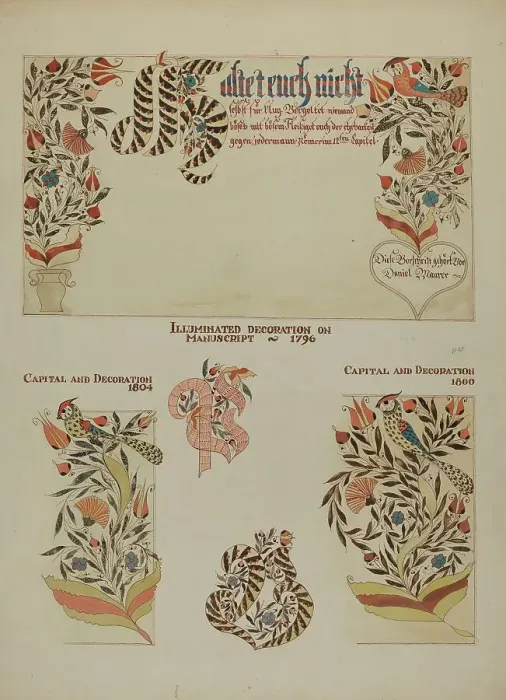 Haltet euch nicht
selbst für klug. Vergeltet niemand
böses mit bösem. Fleisiget euch der ehrbarkeit
gegen jedermann. Römer im 12ten Capitel.
Diese Vorschrift gehört Vor
Daniel Maurer
ILLUMINATED DECORATION ON
MANUSCRIPT ~ 1796
CAPITAL AND DECORATION
1804
CAPITAL AND DECORATION
1800